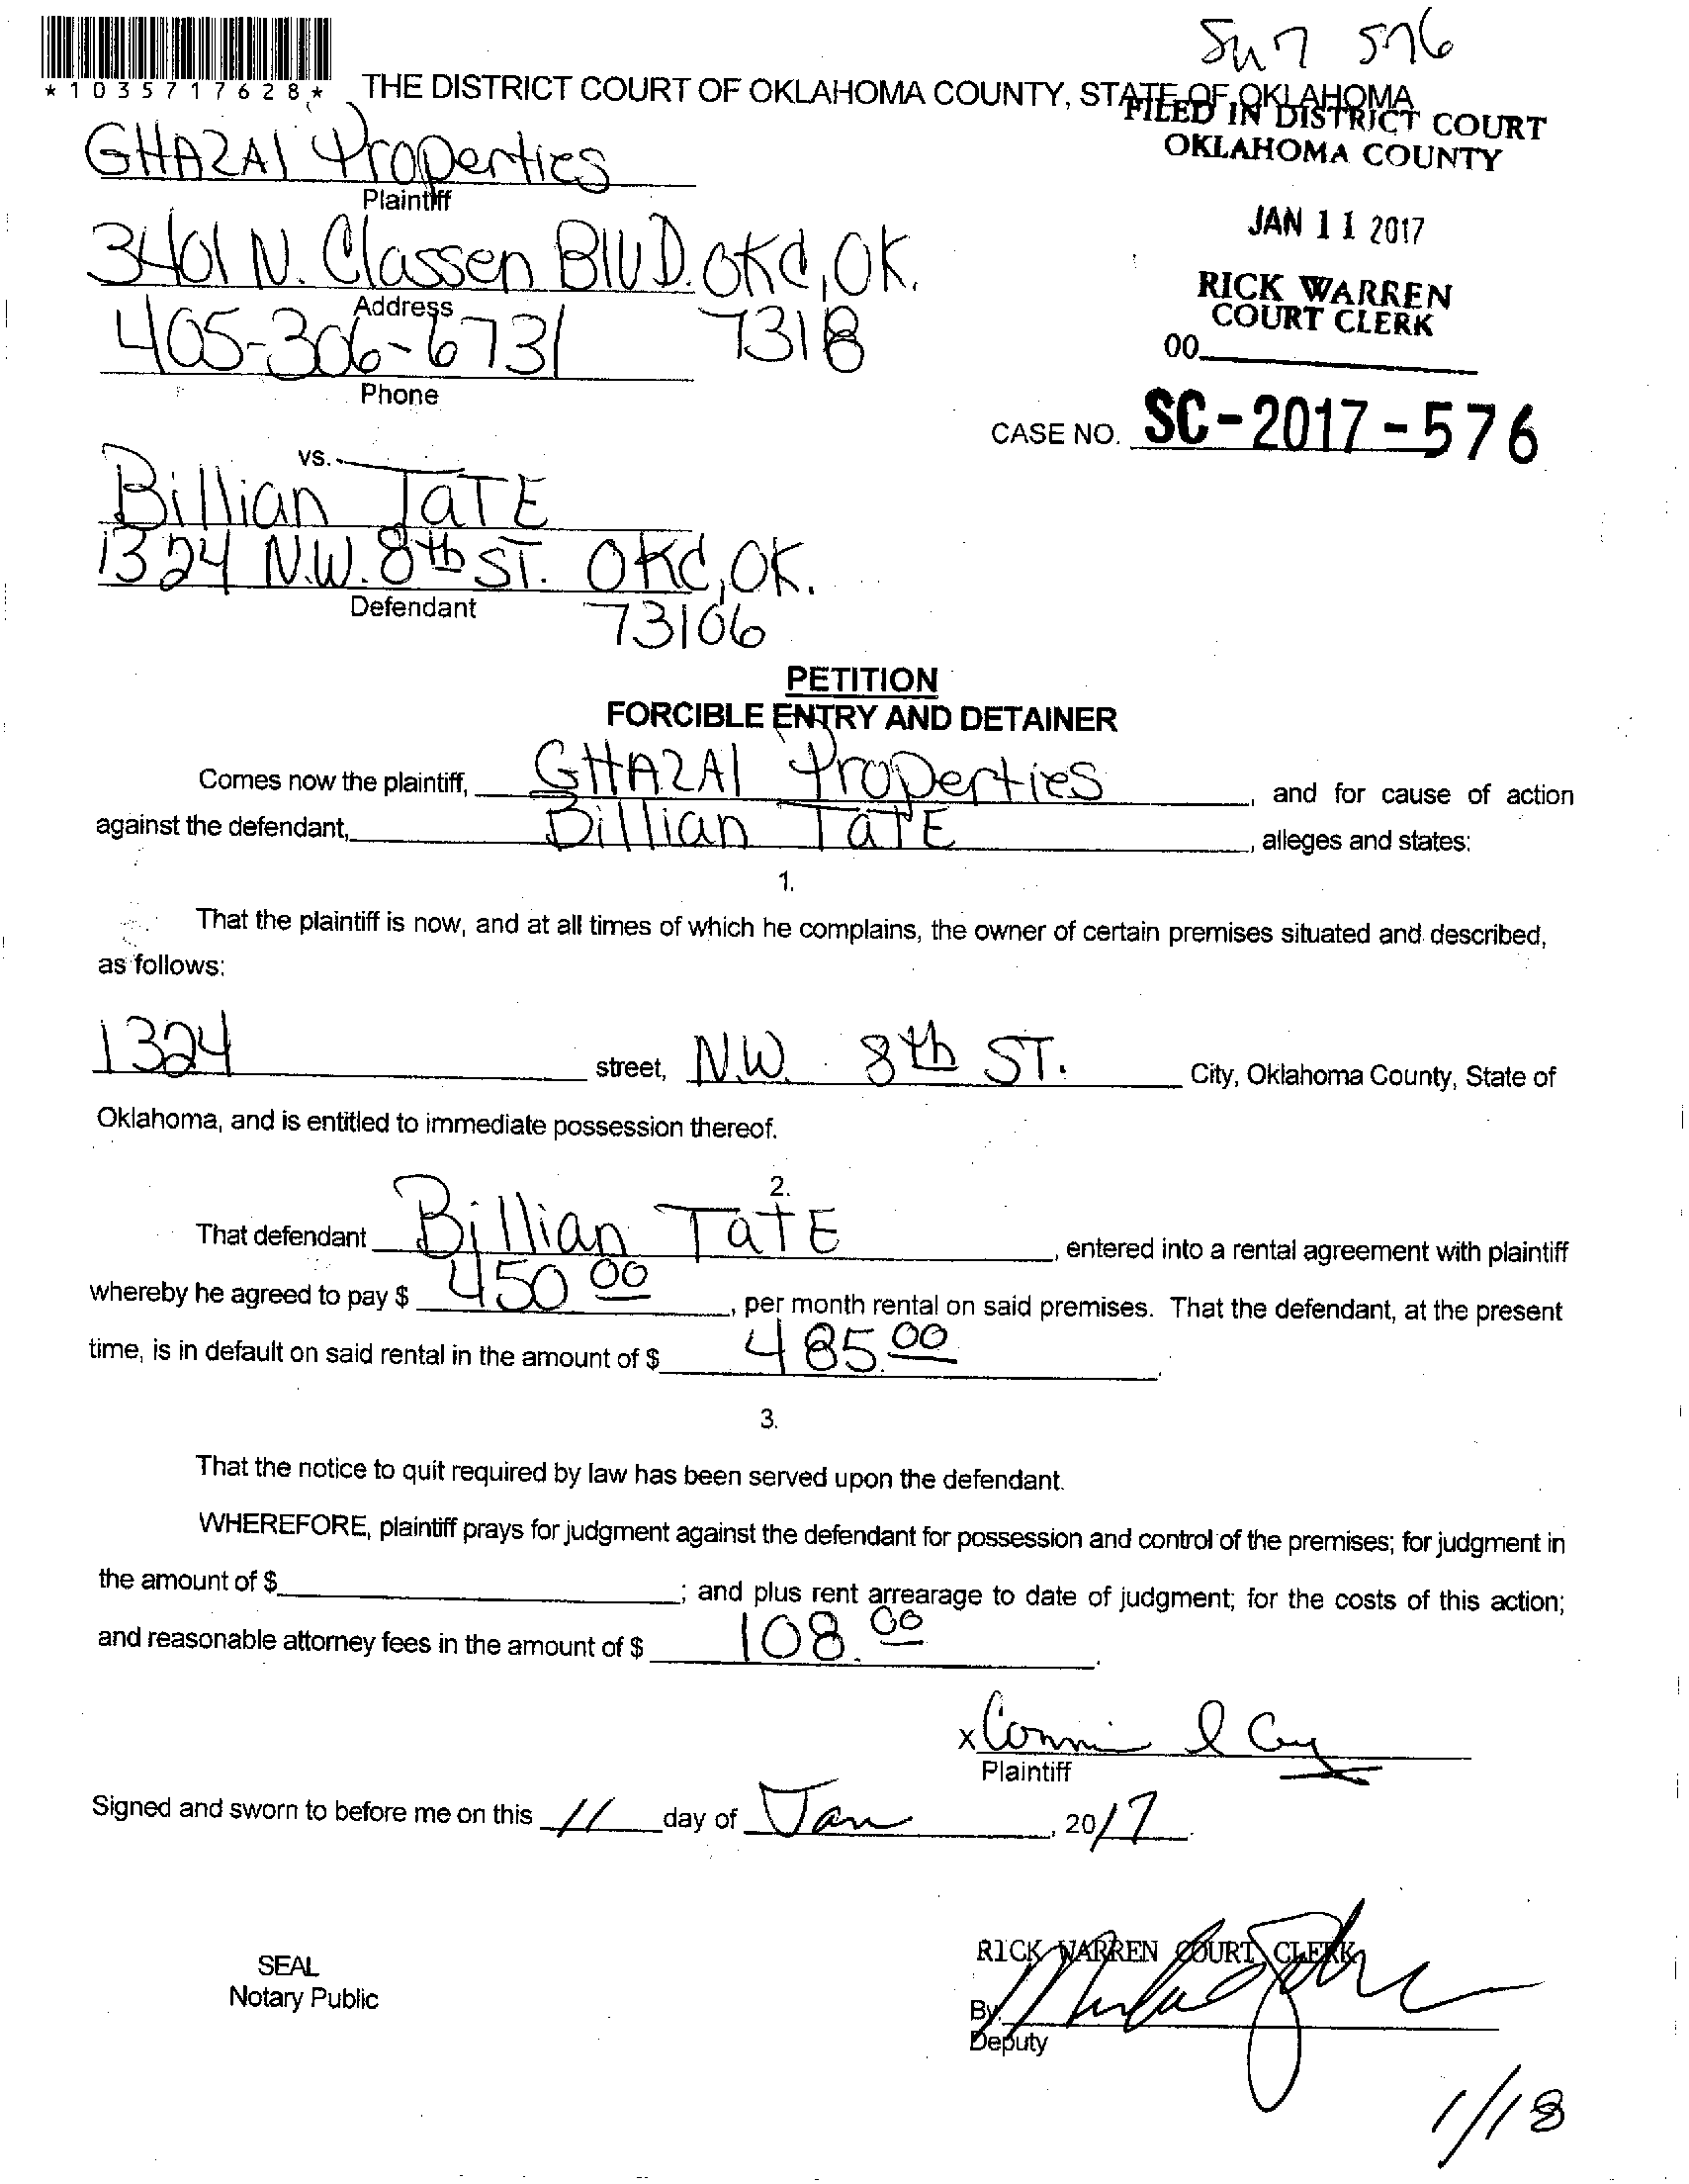 Su7 576
*1035717628*
THE DISTRICT COURT OF OKLAHOMA COUNTY, STATE OF OKLAHOMA
FILED IN DISTRICT COURT
OKLAHOMA COUNTY
GHAZAl Properties
Plaintiff
JAN 11 2017
3401 N. Classen BlVD. OKC, OK.
Address
RICK WARREN
COURT CLERK
405-306-6731 7318
Phone
00
CASE NO. SC-2017-576
vs.
Billian TaTE
1324 N.W. 8th ST. OKC, OK.
Defendant
73106
PETITION
FORCIBLE ENTRY AND DETAINER
Comes now the plaintiff, GHAZAl Properties, and for cause of action
against the defendant, Billian TaTE, alleges and states:
1.
That the plaintiff is now, and at all times of which he complains, the owner of certain premises situated and described,
as follows:
1324 street, N.W. 8th ST. City, Oklahoma County, State of
Oklahoma, and is entitled to immediate possession thereof.
2.
That defendant Billian TatE, entered into a rental agreement with plaintiff
whereby he agreed to pay $ 450 00, per month rental on said premises. That the defendant, at the present
time, is in default on said rental in the amount of $ 485.00.
3.
That the notice to quit required by law has been served upon the defendant.
WHEREFORE, plaintiff prays for judgment against the defendant for possession and control of the premises; for judgment in
the amount of $ ; and plus rent arrearage to date of judgment; for the costs of this action;
and reasonable attorney fees in the amount of $ 108.00.
x
Plaintiff
Signed and sworn to before me on this 11 day of Jan, 2017.
RICK WARREN COURT CLERK
SEAL
Notary Public
By
Deputy
1/18